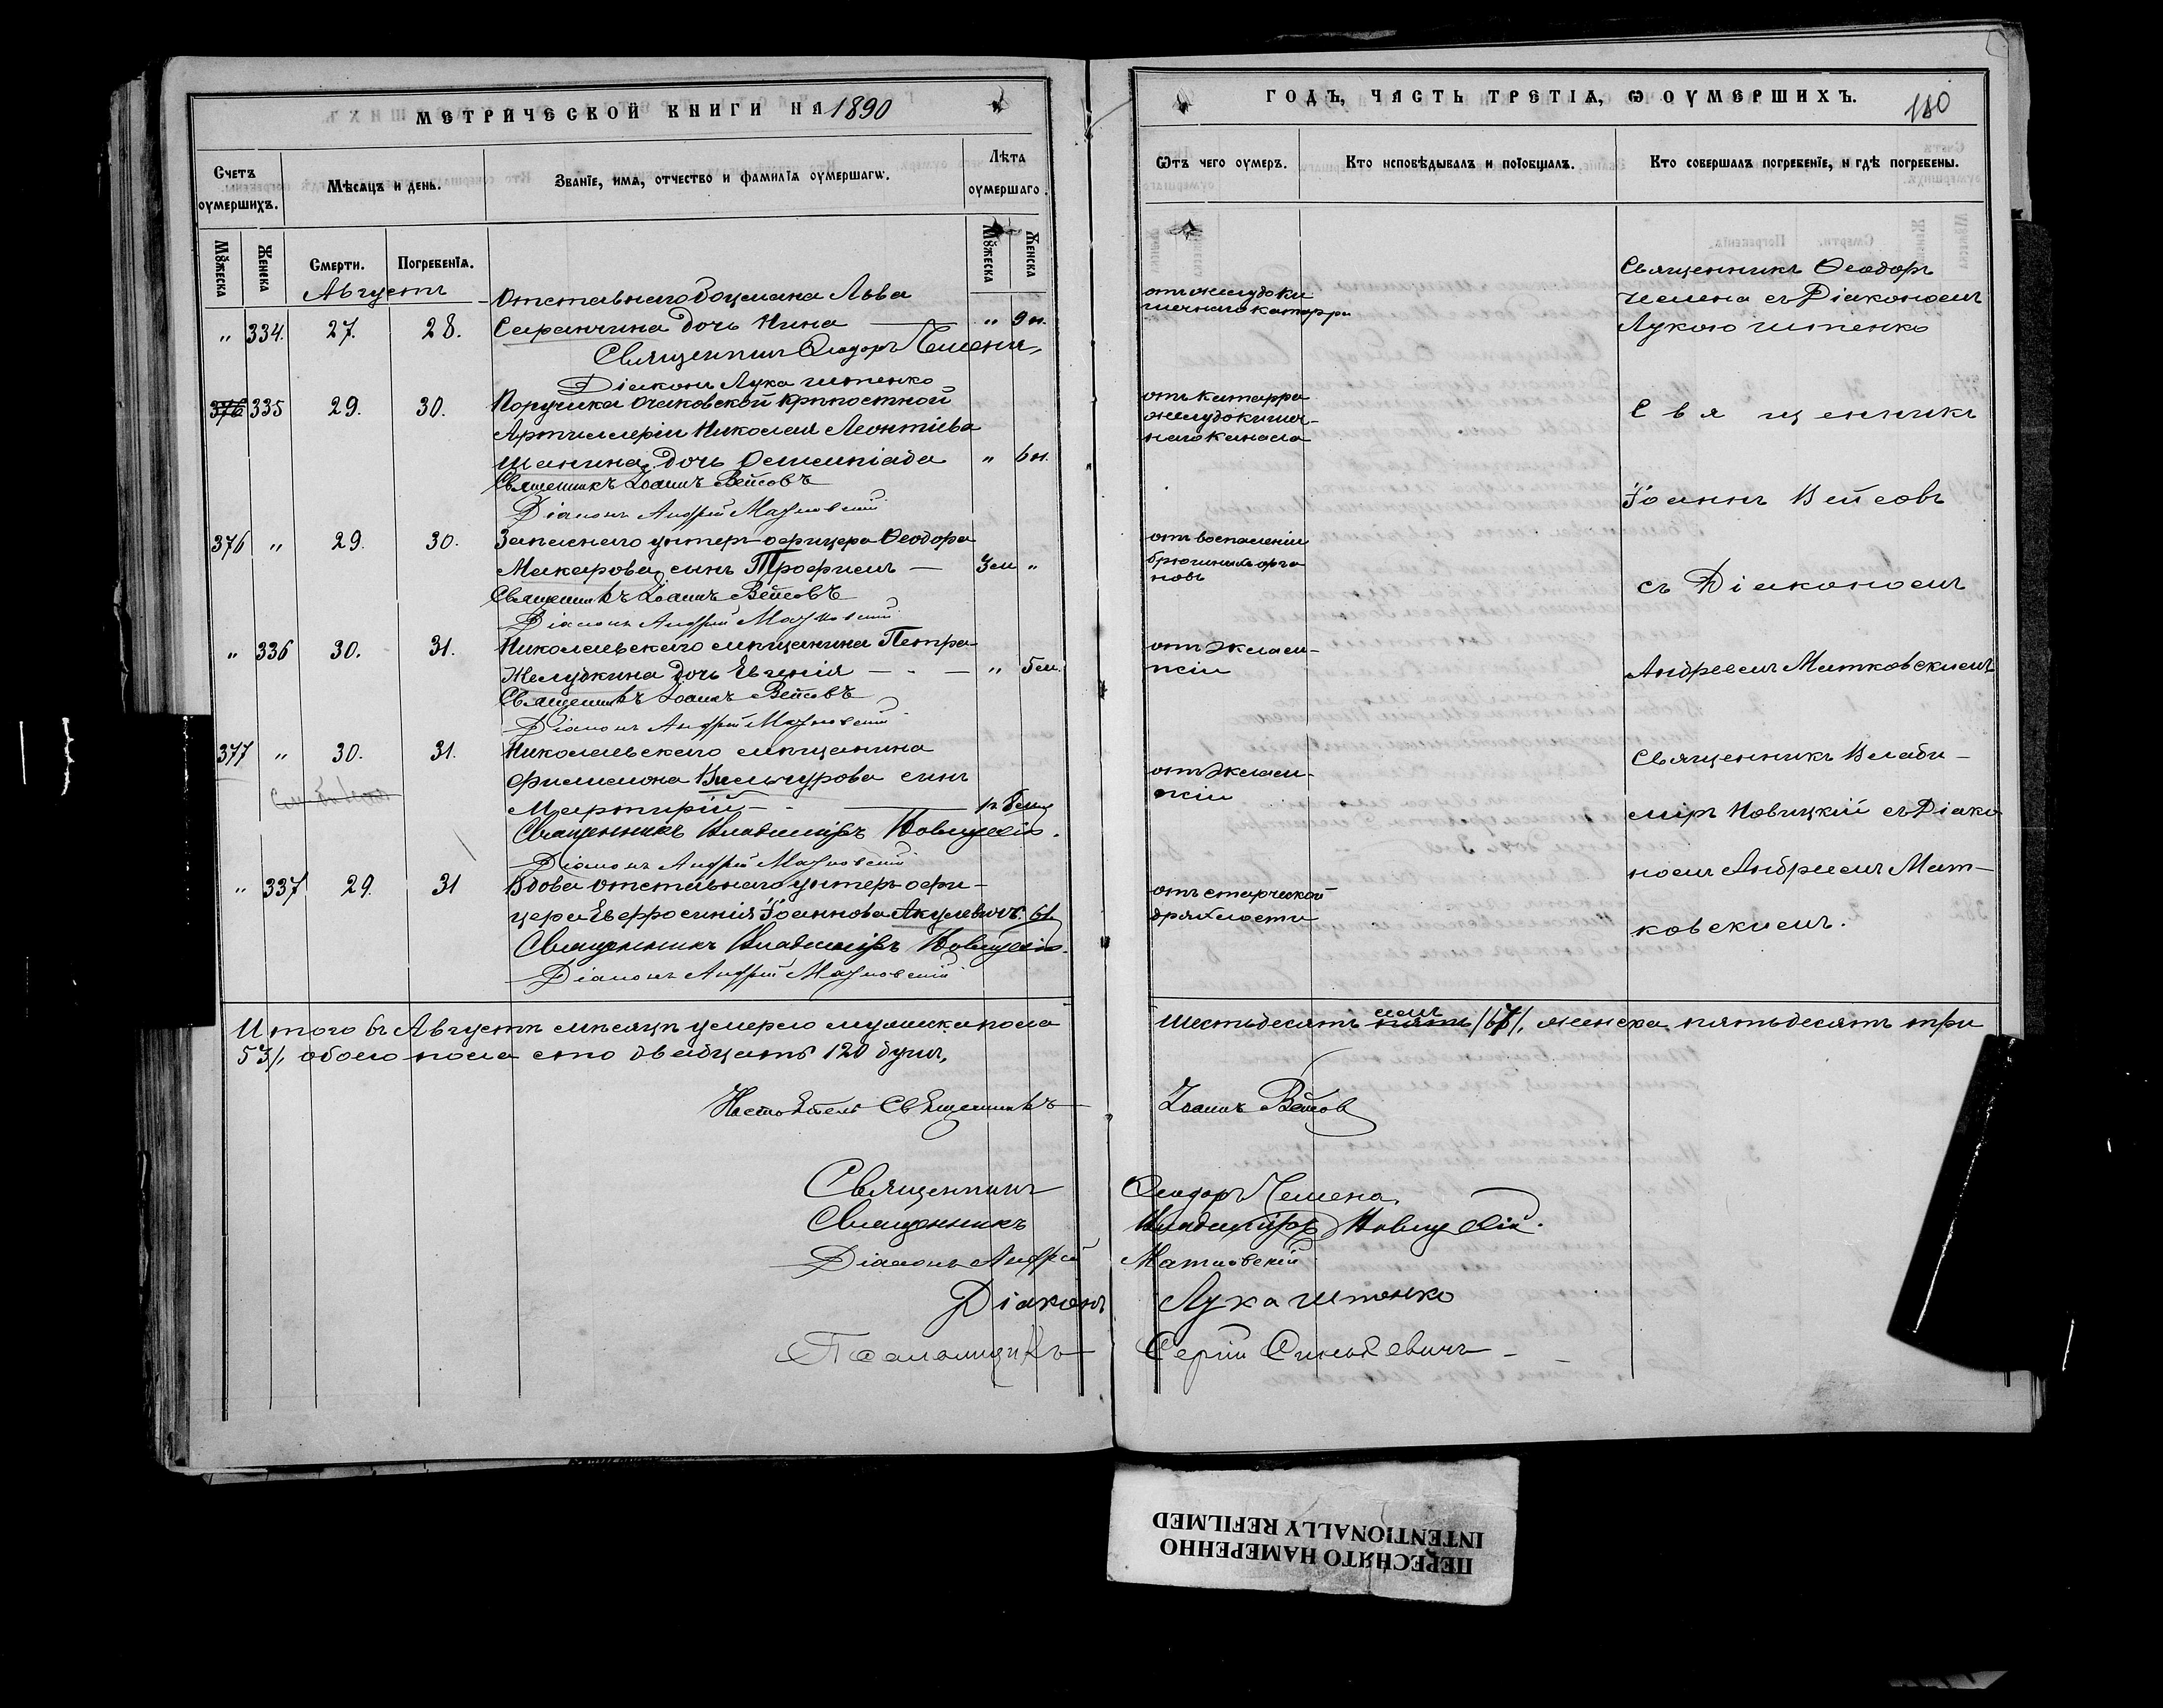 МЕТРИЧЕСКОЙ КНИГИ НА 1890
Счетъ оумершихъ.
Мѣсяцъ и день.
Званіе, имя, отчество и фамилія оумершагѡ.
Лѣта оумершаго.
Мꙋжеска
Женска
Смерти.
Погребенія.
Мꙋжеска
Женска
Августъ
Отставнаго боцмана Льва
" 334. 27. 28. Саранчина дочь Нина — " 9 м.
Священникъ Ѳеодоръ Чемена
Діаконъ Лука Штенко
376 335 29. 30. Поручика Очаковской крѣпостной
Артиллеріи Николая Леонтіева
Шанина дочь Олимпіада " 6 м.
Священникъ Іоаннъ Вейсовъ
Діаконъ Андрей Матковскій
376 " 29. 30. Запаснаго унтеръ-офицера Ѳеодора
Макарова сынъ Трофимъ — 3 м "
Священникъ Іоаннъ Вейсовъ
Діаконъ Андрей Матковскій
" 336 30. 31. Николаевскаго мѣщанина Петра
Желудкина дочь Евгенія — - — " 5 м.
Священникъ Іоаннъ Вейсовъ
Діаконъ Андрей Матковскій
377 " 30. 31. Николаевскаго мѣщанина
Филимона Вильчурова сынъ
Мартирій
Священникъ Владиміръ Новицкій.
Діаконъ Андрей Матковскій
" 337 29. 31 Вдова отставнаго унтеръ офи-
цера Евфросинія Іоаннова Акулевичъ. 61
Священникъ Владиміръ Новицкій.
Діаконъ Андрей Матковскій
Итого въ Августѣ мѣсяцѣ умерло мужеска пола
53/, обоего пола сто двадцать 120 душъ,
Настоятель Священникъ
Священникъ
Священникъ
Діаконъ Андрей
Діаконъ
Псаломщикъ
ГОДЪ, ЧАСТЬ ТРЕТІѦ, Ѡ ОУМЕРШИХЪ.
180
Ѿтъ чего оумеръ.
Кто исповѣдывалъ и пріобщалъ.
Кто совершалъ погребеніе, и гдѣ погребены.
отъ желудоки
шечнаго катарра
отъ катарра
желудокишеч-
наго канала
отъ воспаленія
брюшныхъ орга
новъ
отъ эклам-
псіи
отъ эклам-
псіи
отъ старческой
дряхлости
Священникъ Ѳеодоръ
Чемена съ Діакономъ
Лукою Штенко
Священникъ
Іоаннъ Вейсовъ
съ Діакономъ
Андреемъ Матковскимъ
Священникъ Влади-
міръ Новицкій съ Діако
номъ Андреемъ Мат-
ковскимъ.
шестьдесятъ пять семь /67/, женска пятьдесятъ три
Іоаннъ Вейсовъ
Ѳеодоръ Чемена.
Владиміръ Новицкій.
Матковскій
Лука Штенко
Сергій
ПЕРЕСНЯТО НАМЕРЕННО
INTENTIONALLY REFILMED